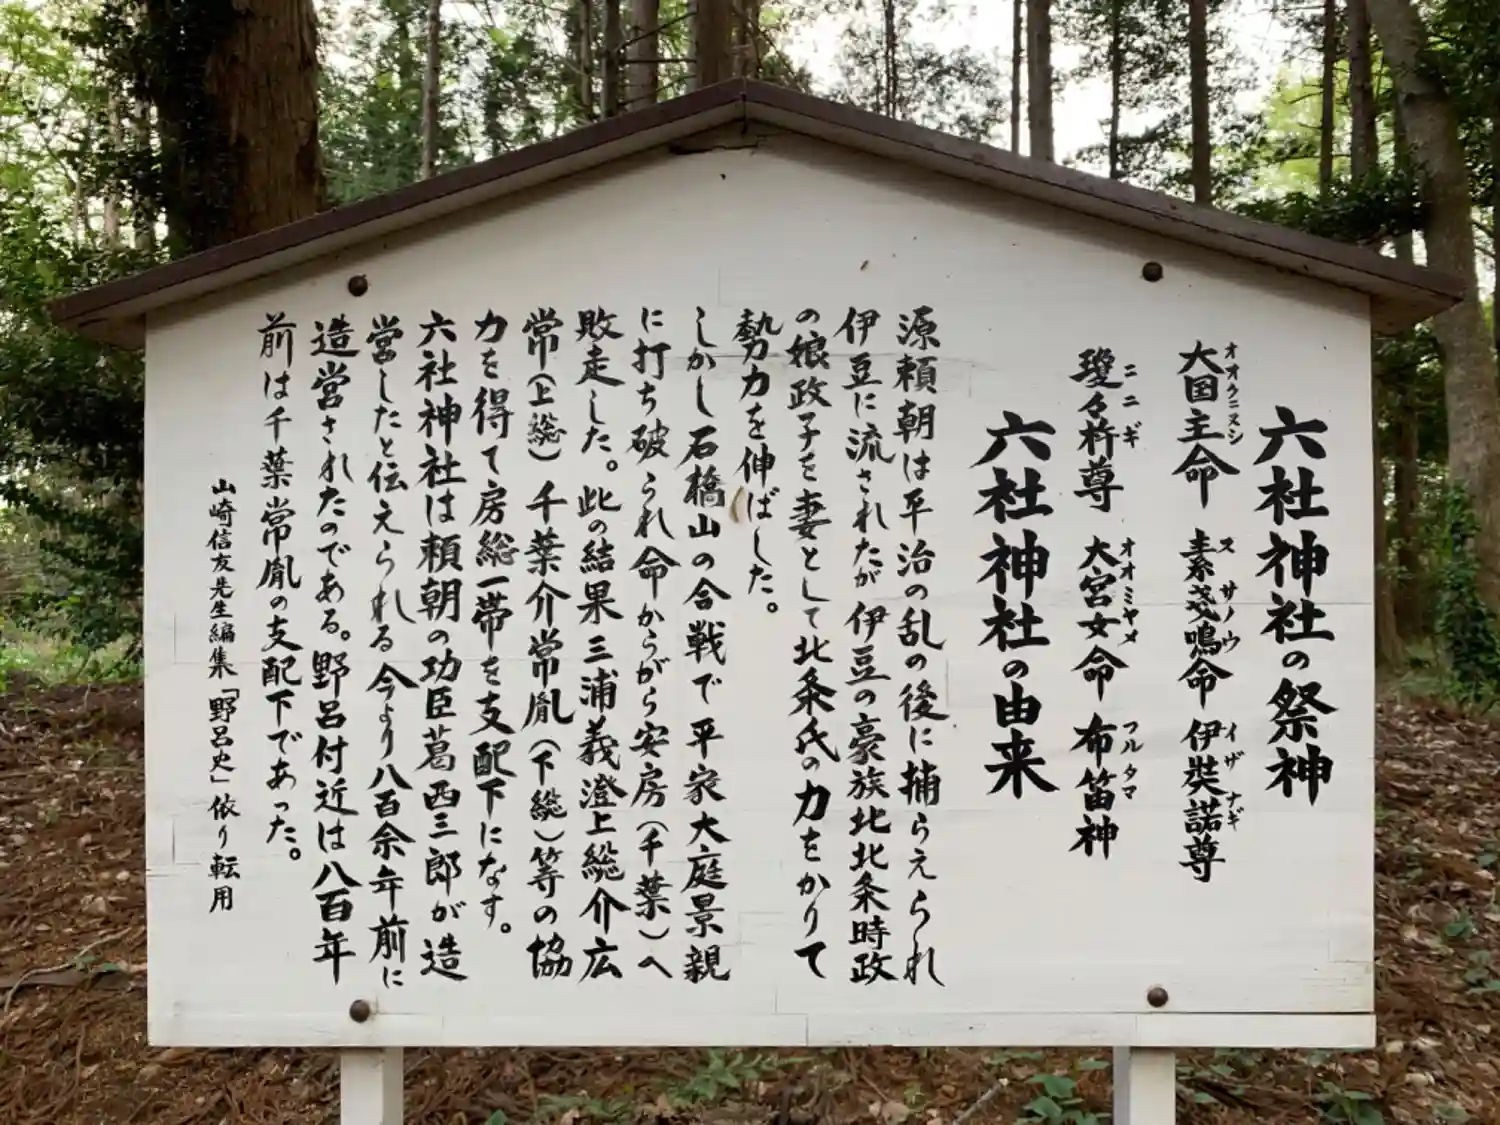 六社神社の祭神
大国主命 素戔嗚命 伊奘諾尊
オオクニヌシ スサノウ イザナギ
瓊々杵尊 大宮女命 布笛神
ニニギ オオミヤメ フルタマ
六社神社の由来
源頼朝は平治の乱の後に捕らえられ
伊豆に流されたが伊豆の豪族北北条時政
の娘政子を妻として北条氏の力をかりて
勢力を伸ばした。
しかし石橋山の合戦で平家大庭景親
に打ち破られ命からがら安房(千葉)へ
敗走した。此の結果三浦義澄上総介広
常(上総)千葉介常胤(下総)等の協
力を得て房総一帯を支配下になす。
六社神社は頼朝の功臣葛西三郎が造
営したと伝えられる今より八百余年前に
造営されたのである。野呂付近は八百年
前は千葉常胤の支配下であった。
山崎信友先生編集「野呂史」依り転用